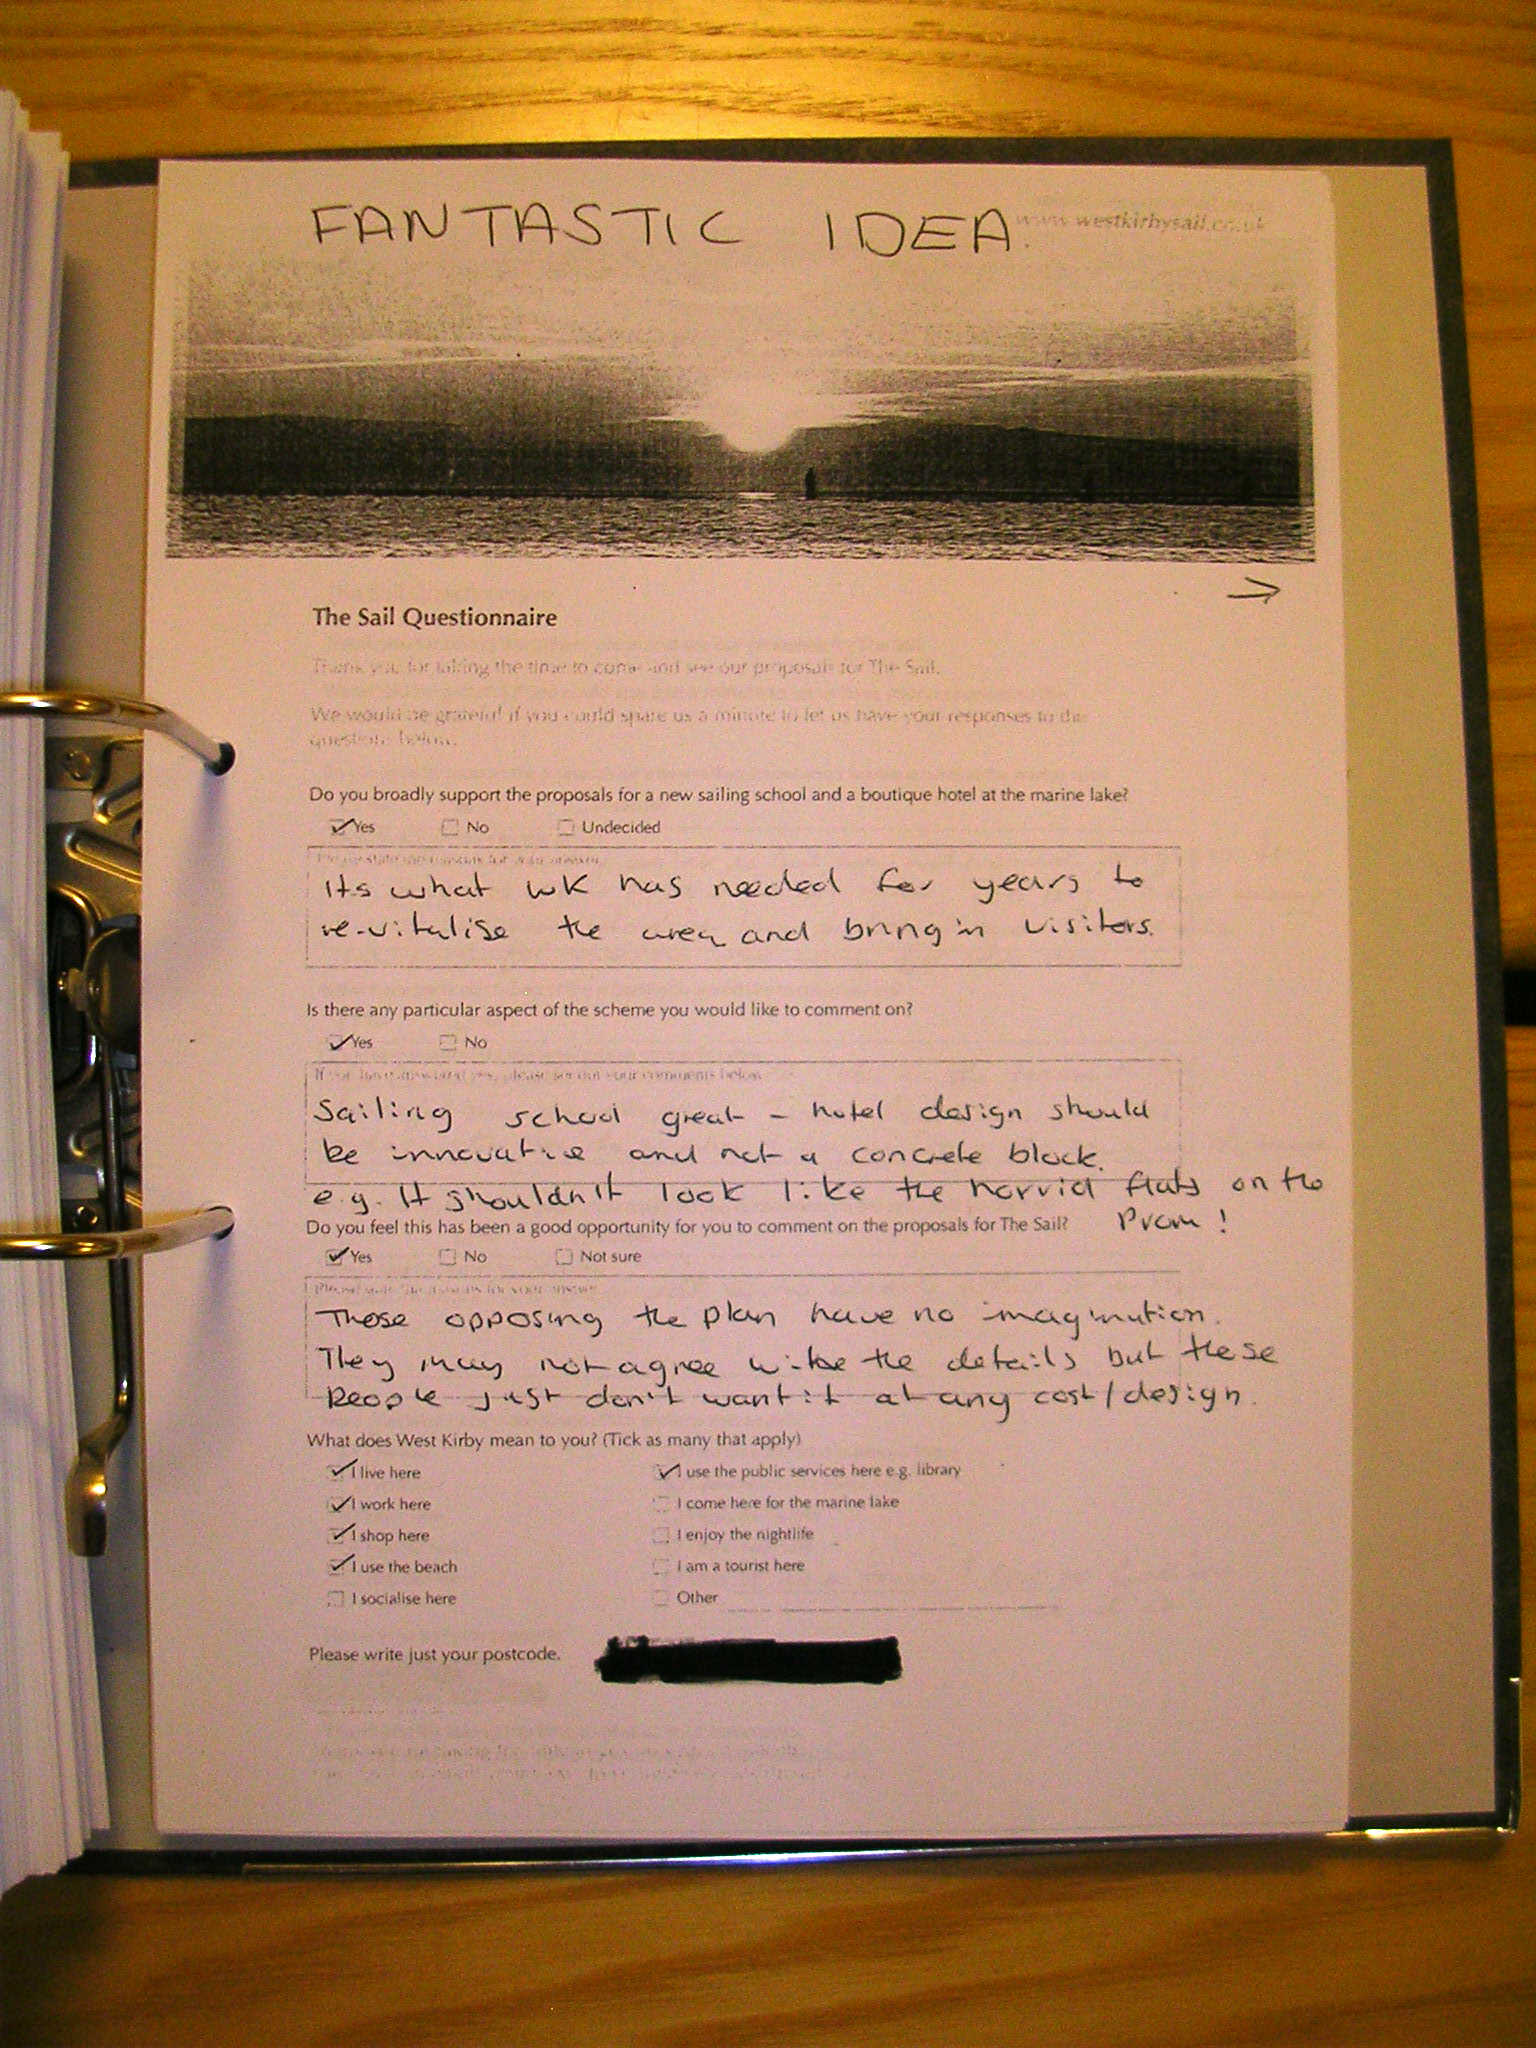 FANTASTIC IDEA.
www.westkirbysail.co.uk
The Sail Questionnaire
Thank you for taking the time to come and see our proposals for The Sail.
We would be grateful if you could spare us a minute to let us have your responses to the
questions below.
Do you broadly support the proposals for a new sailing school and a boutique hotel at the marine lake?
Yes No Undecided
Please state the reasons for your answer
Its what WK has needed for years to
re-vitalise the area and bring in visitors.
Is there any particular aspect of the scheme you would like to comment on?
Yes No
If you have answered yes, please set out your comments below
Sailing school great - hotel design should
be innovative and not a concrete block.
e.g. It shouldn't look like the horrid flats on the
Prom!
Do you feel this has been a good opportunity for you to comment on the proposals for The Sail?
Yes No Not sure
Please state the reasons for your answer
Those opposing the plan have no imagination.
They may not agree with the details but these
people just don't want it at any cost/design.
What does West Kirby mean to you? (Tick as many that apply)
I live here I use the public services here e.g. library
I work here I come here for the marine lake
I shop here I enjoy the nightlife
I use the beach I am a tourist here
I socialise here Other
Please write just your postcode.